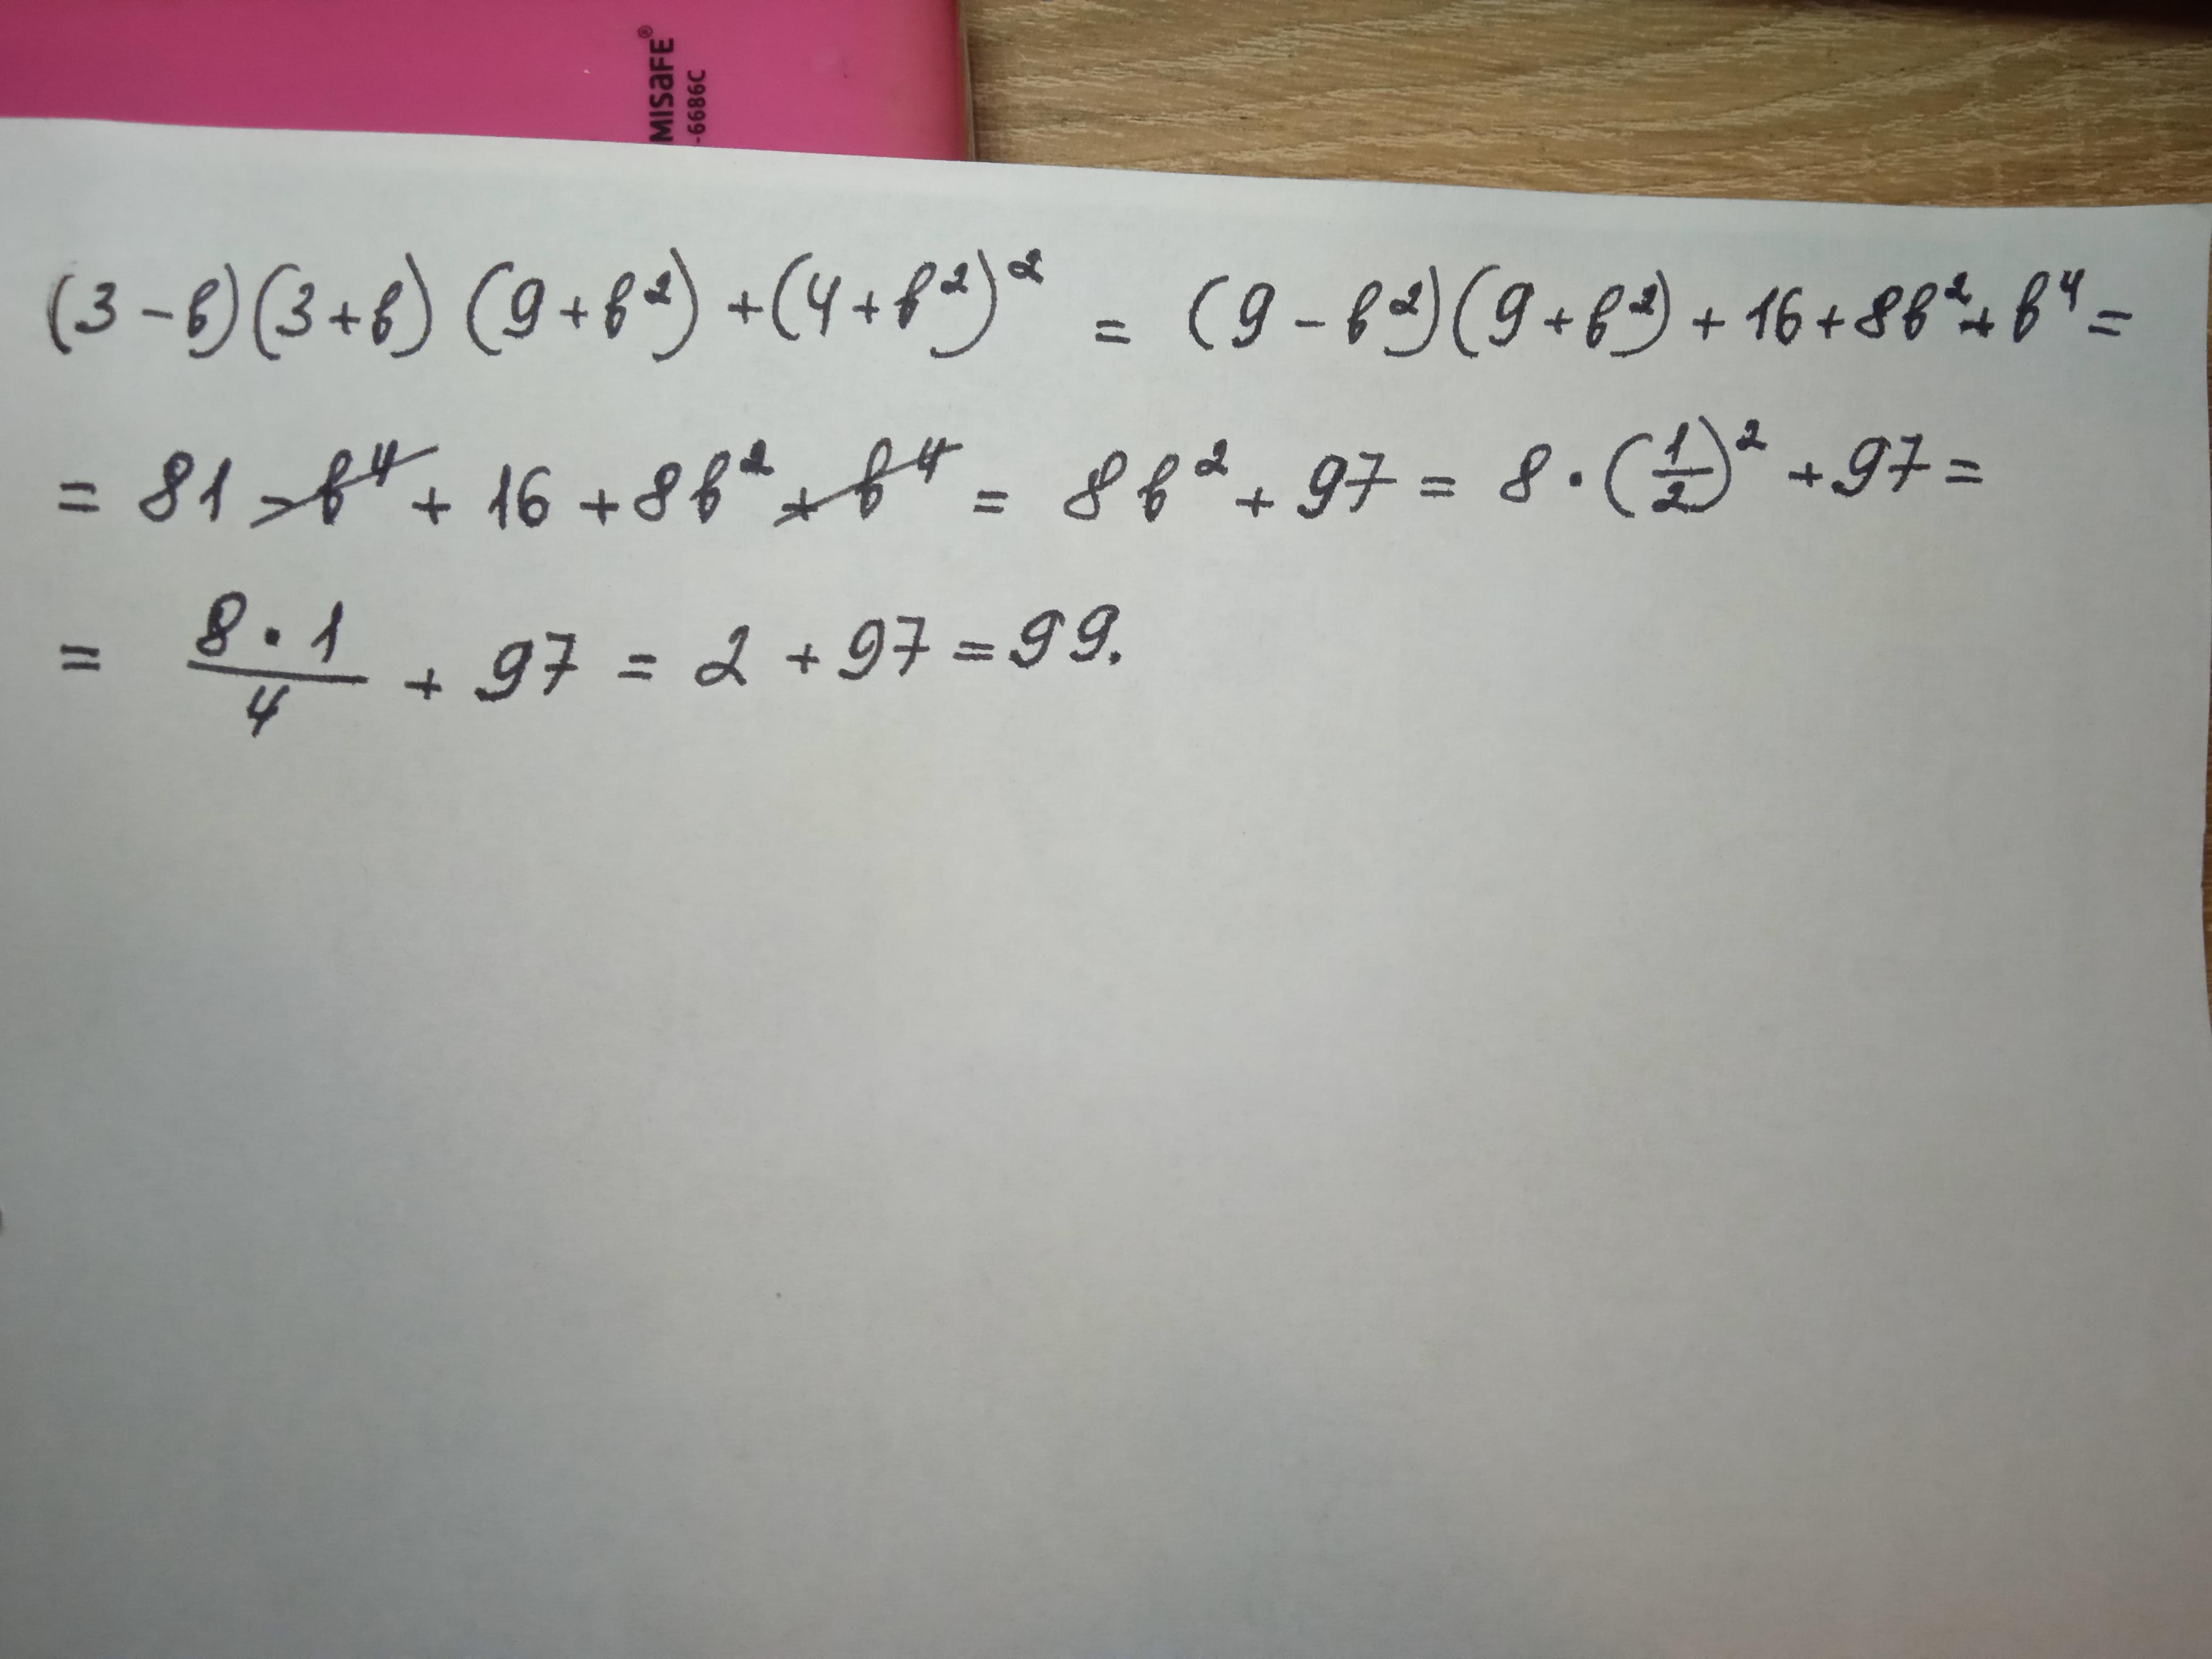 MISAFE®
-6686C
(3 - b)(3 + b) (9 + b²) + (4 + b²)² = (9 - b²)(9 + b²) + 16 + 8b² + b⁴ =
= 81 - b⁴ + 16 + 8b² + b⁴ = 8b² + 97 = 8 · (1/2)² + 97 =
= 8 · 1/4 + 97 = 2 + 97 = 99.